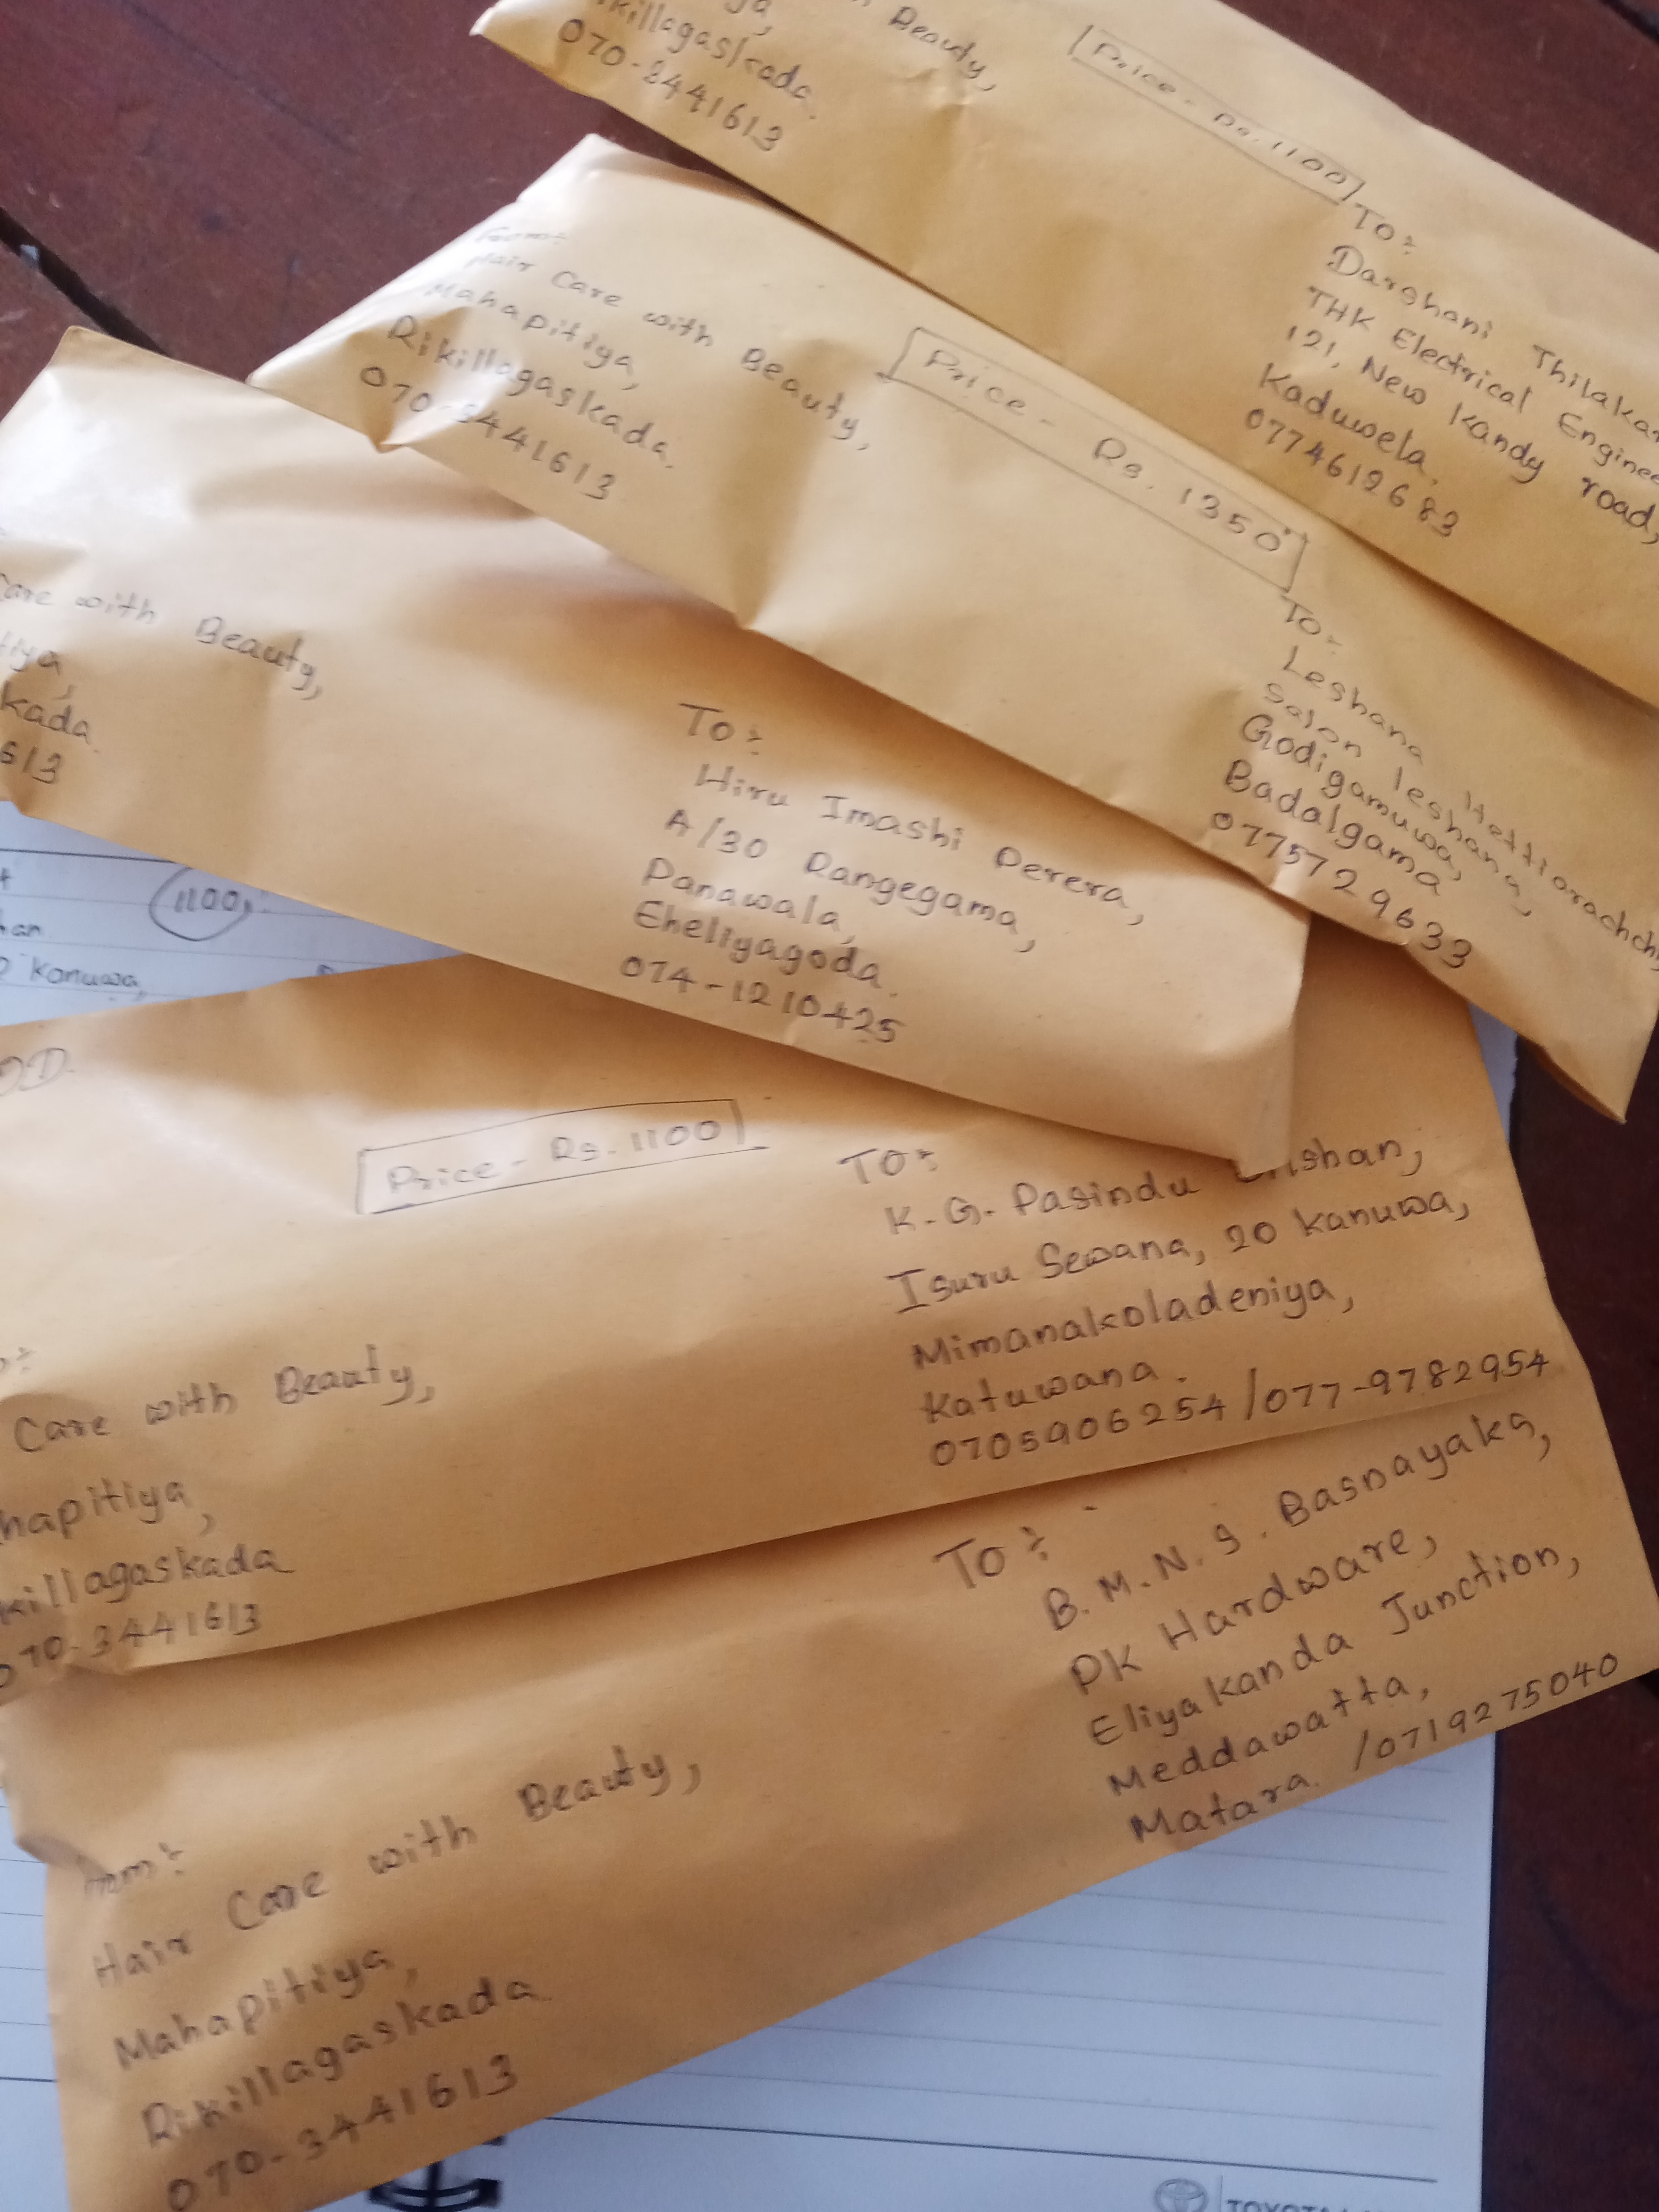 Beauty,
killagaskada.
070-3441613
Price - Rs. 1100
To:
Darshani
THK Electrical
121, New Kandy road,
Kaduwela.
0774612683
From:
Hair Care with Beauty,
Mahapitiya,
Rikillagaskada.
070-3441613
Price - Rs. 1350
To:
Leshana Hettiarachchi,
Salon leshana,
Godigamuwa,
Badalgama
0775729633
Care with Beauty,
tiya,
kada.
613
To:
Hiru Imashi Perera,
A/30 Rangegama,
Panawala,
Eheliyagoda.
074-1210425
1100/-
kanuwa,
OD.
Price - Rs. 1100
To:
K.G. Pasindu
Isuru Sewana, 20 kanuwa,
Mimanakoladeniya,
Katuwana.
0705906254 / 077-9782954
Care with Beauty,
hapitiya,
killagaskada
070-3441613
To:
B.M.N.S. Basnayaka,
PK Hardware,
Eliyakanda Junction,
Meddawatta,
Matara. / 0719275040
From:
Hair Care with Beauty,
Mahapitiya,
Rikillagaskada
070-3441613
TOYOTA